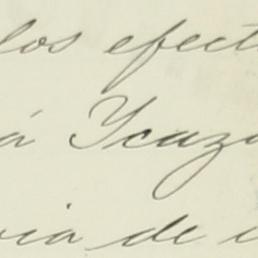 los efect
á Ycaza
ia de